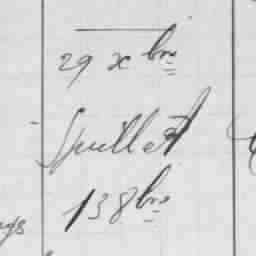 29 x bre
Juillet
13 8bre